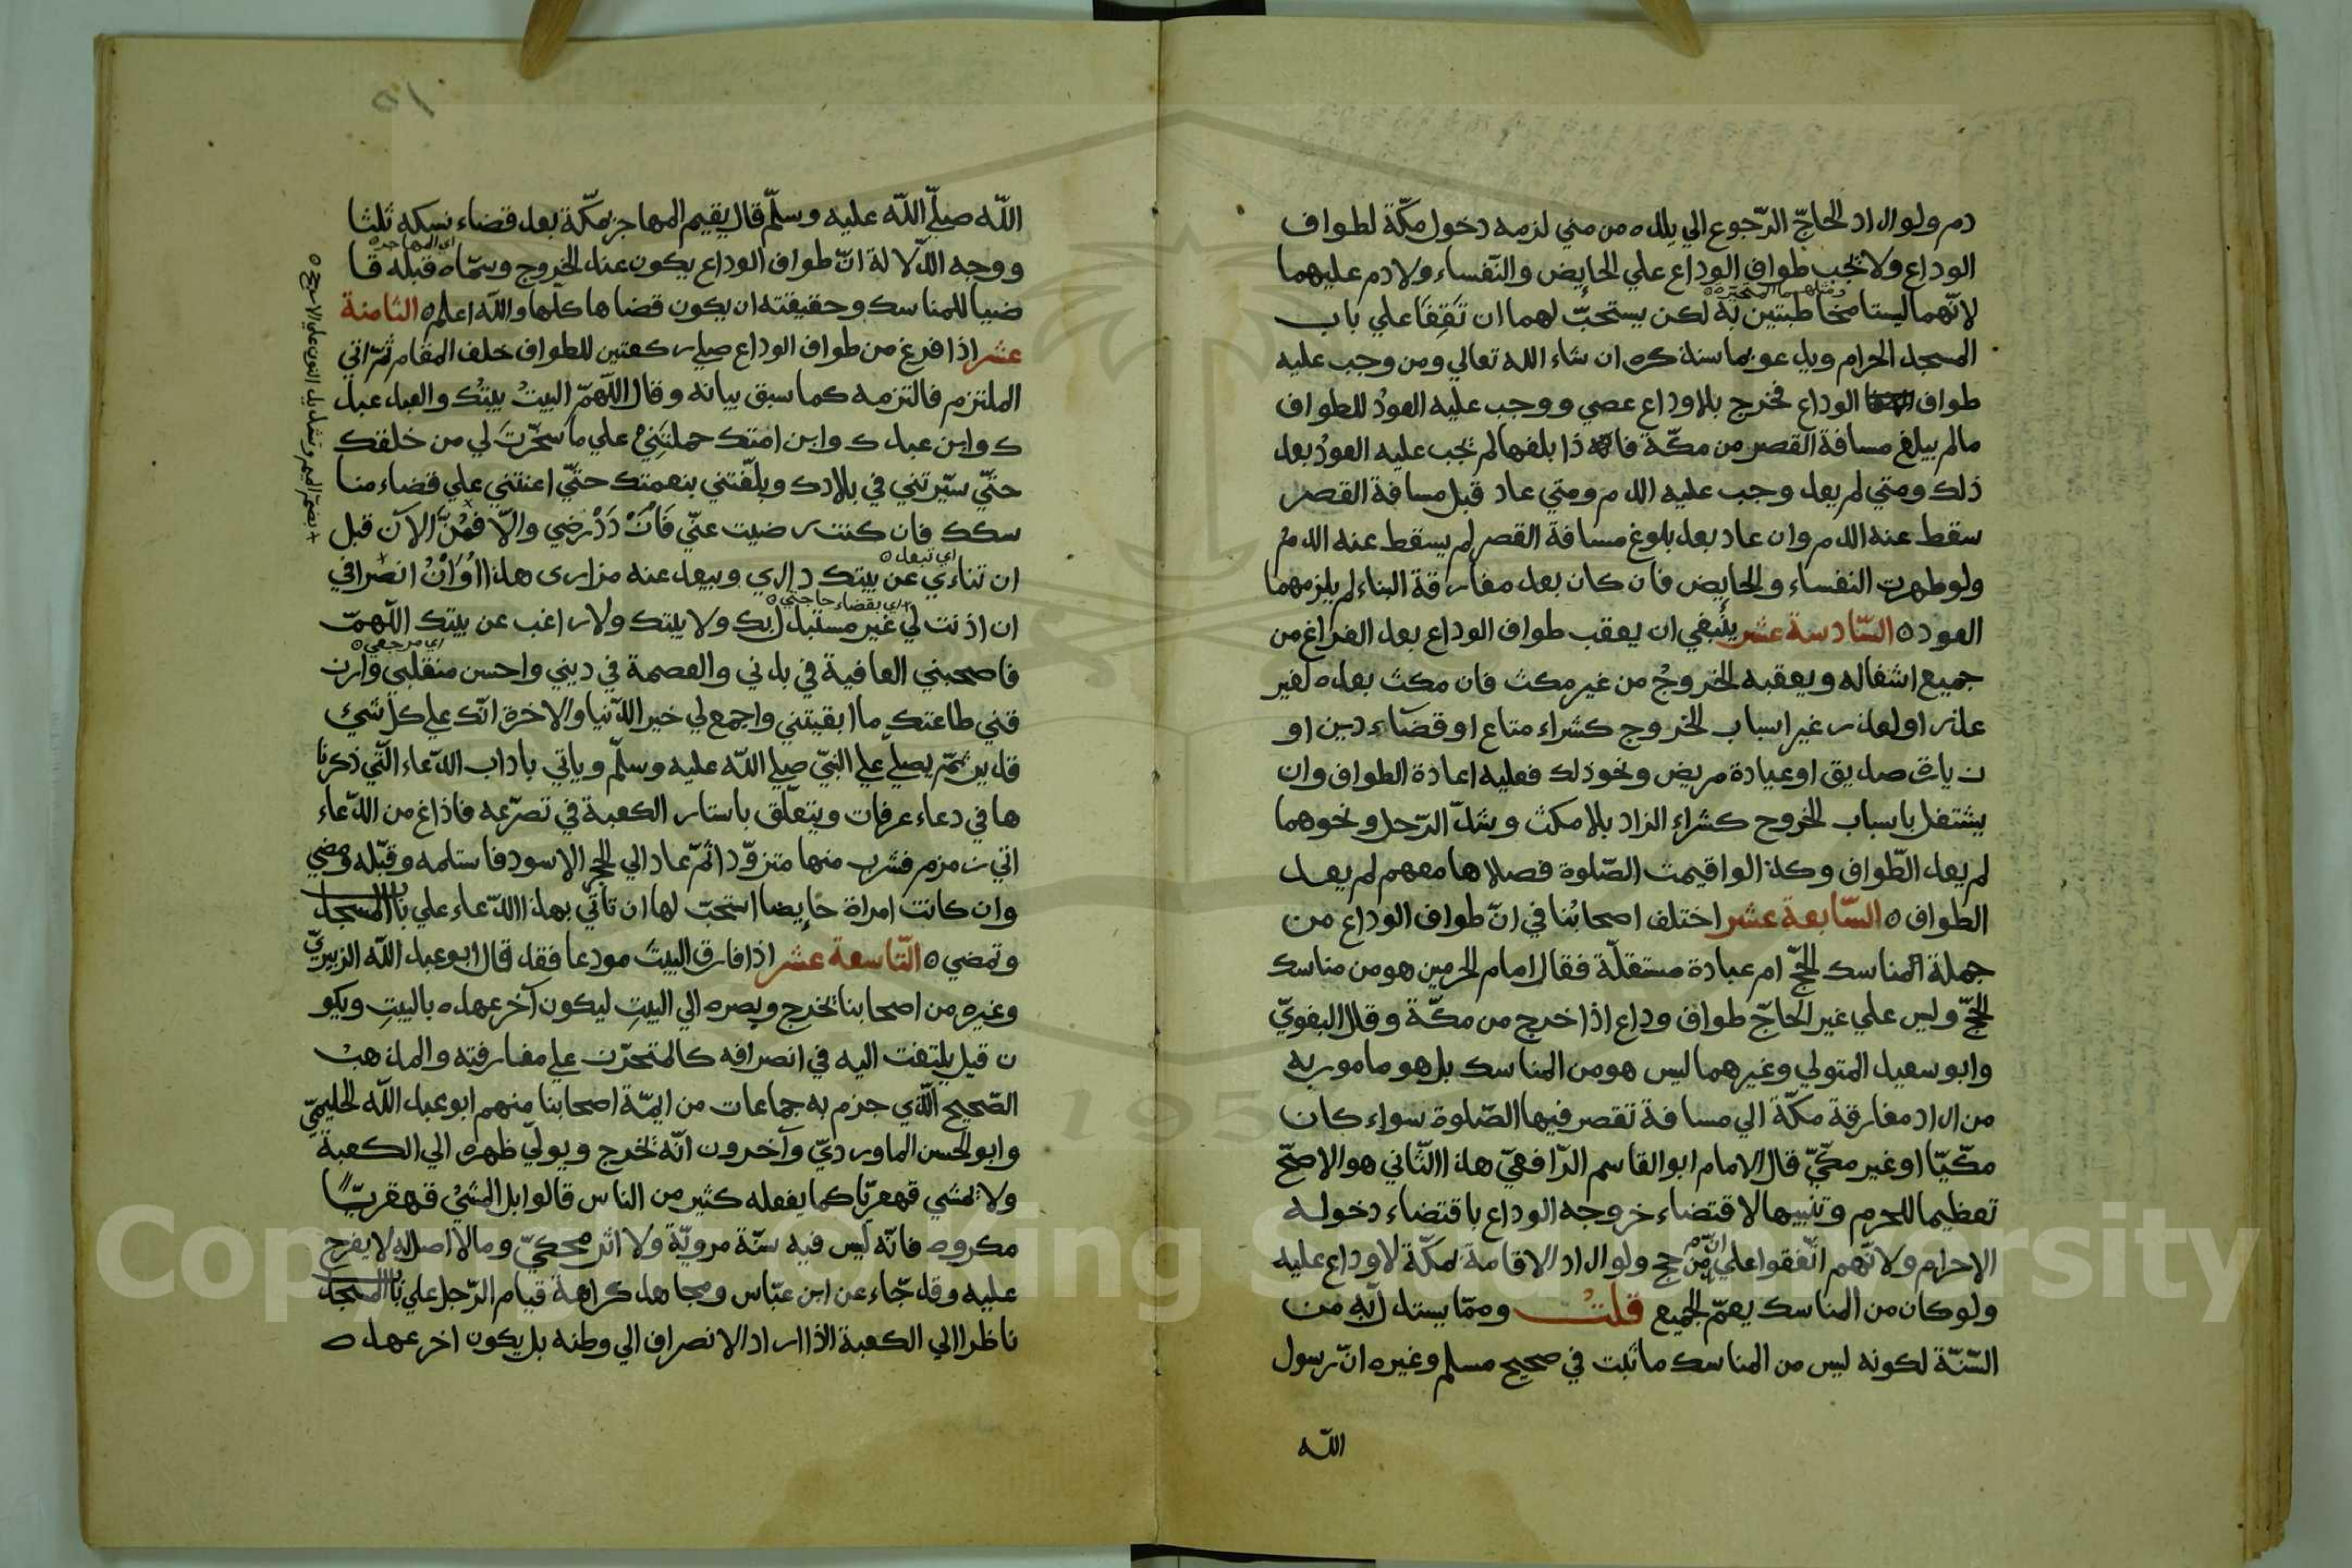 دم ولو اراد الحاجّ الرّجوع الي بلده من مني لزمه دخول مكّة لطواف
الوداع ولا تجب طواف الوداع علي الحايض والنّفساء ولا دم عليهما
ومثلهما المتحيرة
لانّهما ليستا مخاطبتين به لكن يستحبّ لهما ان تَقِفَا علي باب
المسجد الحرام ويدعو بما سنذكره ان شاء الله تعالي ومن وجب عليه
طواف الوداع فخرج بلا وداع عصي ووجب عليه العودُ للطواف
مالم يبلغ مسافة القصر من مكّة فاذا بلغها لم تجب عليه العودُ بعد
ذلك ومتي لم يعد وجب عليه الدم ومتي عاد قبل مسافة القصر
سقط عنه الدم وان عاد بعد بلوغ مسافة القصر لم يسقط عنه الدمُ
ولو طهرت النفساء والحايض فان كان بعد مفارقة البناء لم يلزمهما
العود ٥ السّادسة عشر ينبغي ان يعقب طواف الوداع بعد الفراغ من
جميع اشغاله ويعقبه الخروجُ من غير مكث فان مكث بعده لغير
عذر او لعذر غير اسباب الخروج كشراء متاع او قضاء دين او
زيارة صديق او عيادة مريض ونحو ذلك فعليه اعادة الطواف وان
يشتغل باسباب الخروج كشراء الزاد بلا مكث وشدّ الرّحل ونحوهما
لم يعد الطّواف وكذا لو اقيمت الصّلوة فصلاها معهم لم يعد
الطواف ٥ السّابعة عشر اختلف اصحابُنا في انّ طواف الوداع من
جملة المناسك الحجّ ام عبادة مستقلّة فقال امام الحرمين هو من مناسك
الحجّ وليس علي غير الحاجّ طواف وداع اذا خرج من مكّة وقال البغويّ
وابو سعيد المتولي وغيرهما ليس هو من المناسك بل هو مامور به
من اراد مفارقة مكّة الي مسافة تقصر فيها الصّلوة سواء كان
مكّيّا او غير مكّيّ قال الامام ابو القاسم الرّافعيّ هذا الثّاني هو الاصحّ
تعظيما للحرم وتشبيها لاقتضاء خروجه الوداع باقتضاء دخوله
الاحرام ولانّهم اتّفقوا علي انّ من حج ولو اراد الاقامة لمكّة لا وداع عليه
ولو كان من المناسك يعمّ الجميع قلتُ وممّا يستدلّ به من
السّنّة لكونه ليس من المناسك ما ثبت في صحيح مسلم وغيره انّ رسول
الله
١٥
اللّه صلّي اللّه عليه وسلّم قال يقيم المهاجر بمكّة بعد قضاء نسكه ثلثا
اي المهاجر
ووجه الدّلالة انّ طواف الوداع يكون عند الخروج وسمّاه قبله قا
ضيا للمناسك وحقيقته ان يكون قضاها كلّها والله اعلم ٥ الثامنة
عشر اذا فرغ من طواف الوداع صلي ركعتين للطواف خلف المقام ثمّ اتي
الملتزم فالتزمه كما سبق بيانه وقال اللّهمّ البيتُ بيتُك والعبد عبد
ك وابن عبدك وابن امتك حملتَنِيْ علي ما سخّرتَ لي من خلقك
حتّي سيّرتني في بلادك وبلّغتني بنعمتك حتّي اعنتني علي قضاء منا
سكك فان كنت رضيت عنّي فَازْدَدْ رضي والّا فمُنَّ الآن قبل
اي تبعد
ان تناءي عن بيتك داري ويبعد عنه مزاري هذا اوَانُ انصرافي
اي بقضاء حاجتي
ان اذنت لي غير مستبدل بك ولا بيتك ولا راغب عن بيتك اللّهمّ
اي مرجعي
فاصحبني العافية في بدني والعصمة في ديني واحسن منقلبي وارز
قني طاعتك ما ابقيتني واجمع لي خير الدّنيا والاخرة انّك علي كل شئ
قدير ثمّ يصلّي علي النّبيّ صلي اللّه عليه وسلّم وياتي باداب الدّعاء الّتي ذكرنا
ها في دعاء عرفات ويتعلّق باستار الكعبة في تضرّعه فاذا فرغ من الدّعاء
اتي زمزم فشرب منها متزوّدا ثمّ عاد الي الحجر الاسود فاستلمه وقبّله ومضي
وان كانت امراة حايضا استحبّ لها ان تأتي بهذا الدّعاء علي باب المسجد
وتمضي ٥ التّاسعة عشر اذا فارق البيتَ مودعا فقد قال ابو عبد الله الزبيريّ
وغيره من اصحابنا تخرج وبصره الي البيتِ ليكون آخر عهده بالبيتِ ويكو
ن قيل يلتفت اليه في انصرافه كالمتحزّن علي مفارقته والمذهبُ
الصّحيح الّذي جزم به جماعات من ايمّة اصحابنا منهم ابو عبد الله الحليميّ
وابو الحسن الماورديّ وآخرون انّه تخرج ويولّي ظهره الي الكعبة
ولا يمشي قهقريّا كما يفعله كثير من الناس قالوا بل المشيُ قهقريّا
مكروه فانّه ليس فيه سنّة مرويّة ولا اثر محكيّ وما لا اصل له لا يعرج
عليه وقد جّاء عن ابن عبّاس ومجاهد كراهة قيام الرّجل علي باب المسجد
ناظرا الي الكعبة اذا اراد الانصراف الي وطنه بل يكون اخر عهده
بضمّ الميم وتشديد النون علي الارجح
Copyright © King Saud University
195